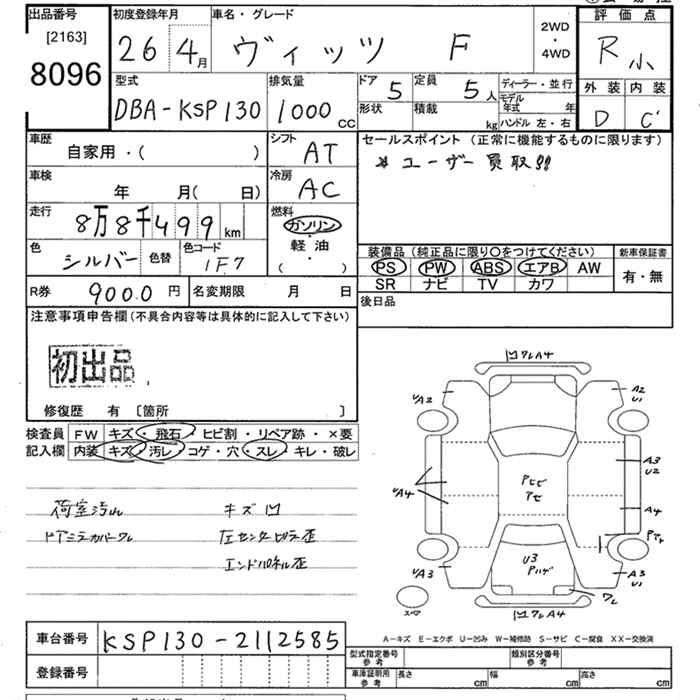 出品番号
[2163]
8096
初度登録年月
26 4月
車名・グレード
ヴィッツ F
2WD
・
4WD
評価点
R 小
外装 内装
D C'
型式
DBA-KSP130
排気量
1000 cc
ドア 5
定員 5人
形状
積載 kg
ディーラー・並行
モデル年式 年
ハンドル 左・右
車歴
自家用・( )
シフト
AT
セールスポイント(正常に機能するものに限ります)
* ユーザー買取!!
車検
年 月( 日)
冷房
AC
走行
8万8千499 km
燃料
ガソリン
軽油
( )
色
シルバー
色替
色コード
1F7
装備品(純正品に限り○をつけてください)
PS PW ABS エアB AW
SR ナビ TV カワ
新車保証書
有・無
R券 9000円
名変期限 月 日
後日品
注意事項申告欄(不具合内容等は具体的に記入して下さい)
初出品
修復歴 有 [箇所 ]
検査員記入欄
FW キズ・飛石・ヒビ割・リペア跡・×要
内装 キズ・汚レ・コゲ・穴・スレ・キレ・破レ
荷室汚レ キズ凹
ドアミラーカバーワレ 左センターピラー歪
エンドパネル歪
凹ワレA4
UA2
A2
U1
A3
U2
UA4
Pヒビ
アセ
A4
UA3
U3
Pハゲ
A3
U1
ワレ
スペア
凹ワレA4
A-キズ E-エクボ U-凹み W-補修跡 S-サビ C-腐食 XX-交換済
車台番号 KSP130-2112585
登録番号
型式指定番号
参考
類別区分番号
参考
車庫証明用
参考
長さ cm
幅 cm
高さ cm